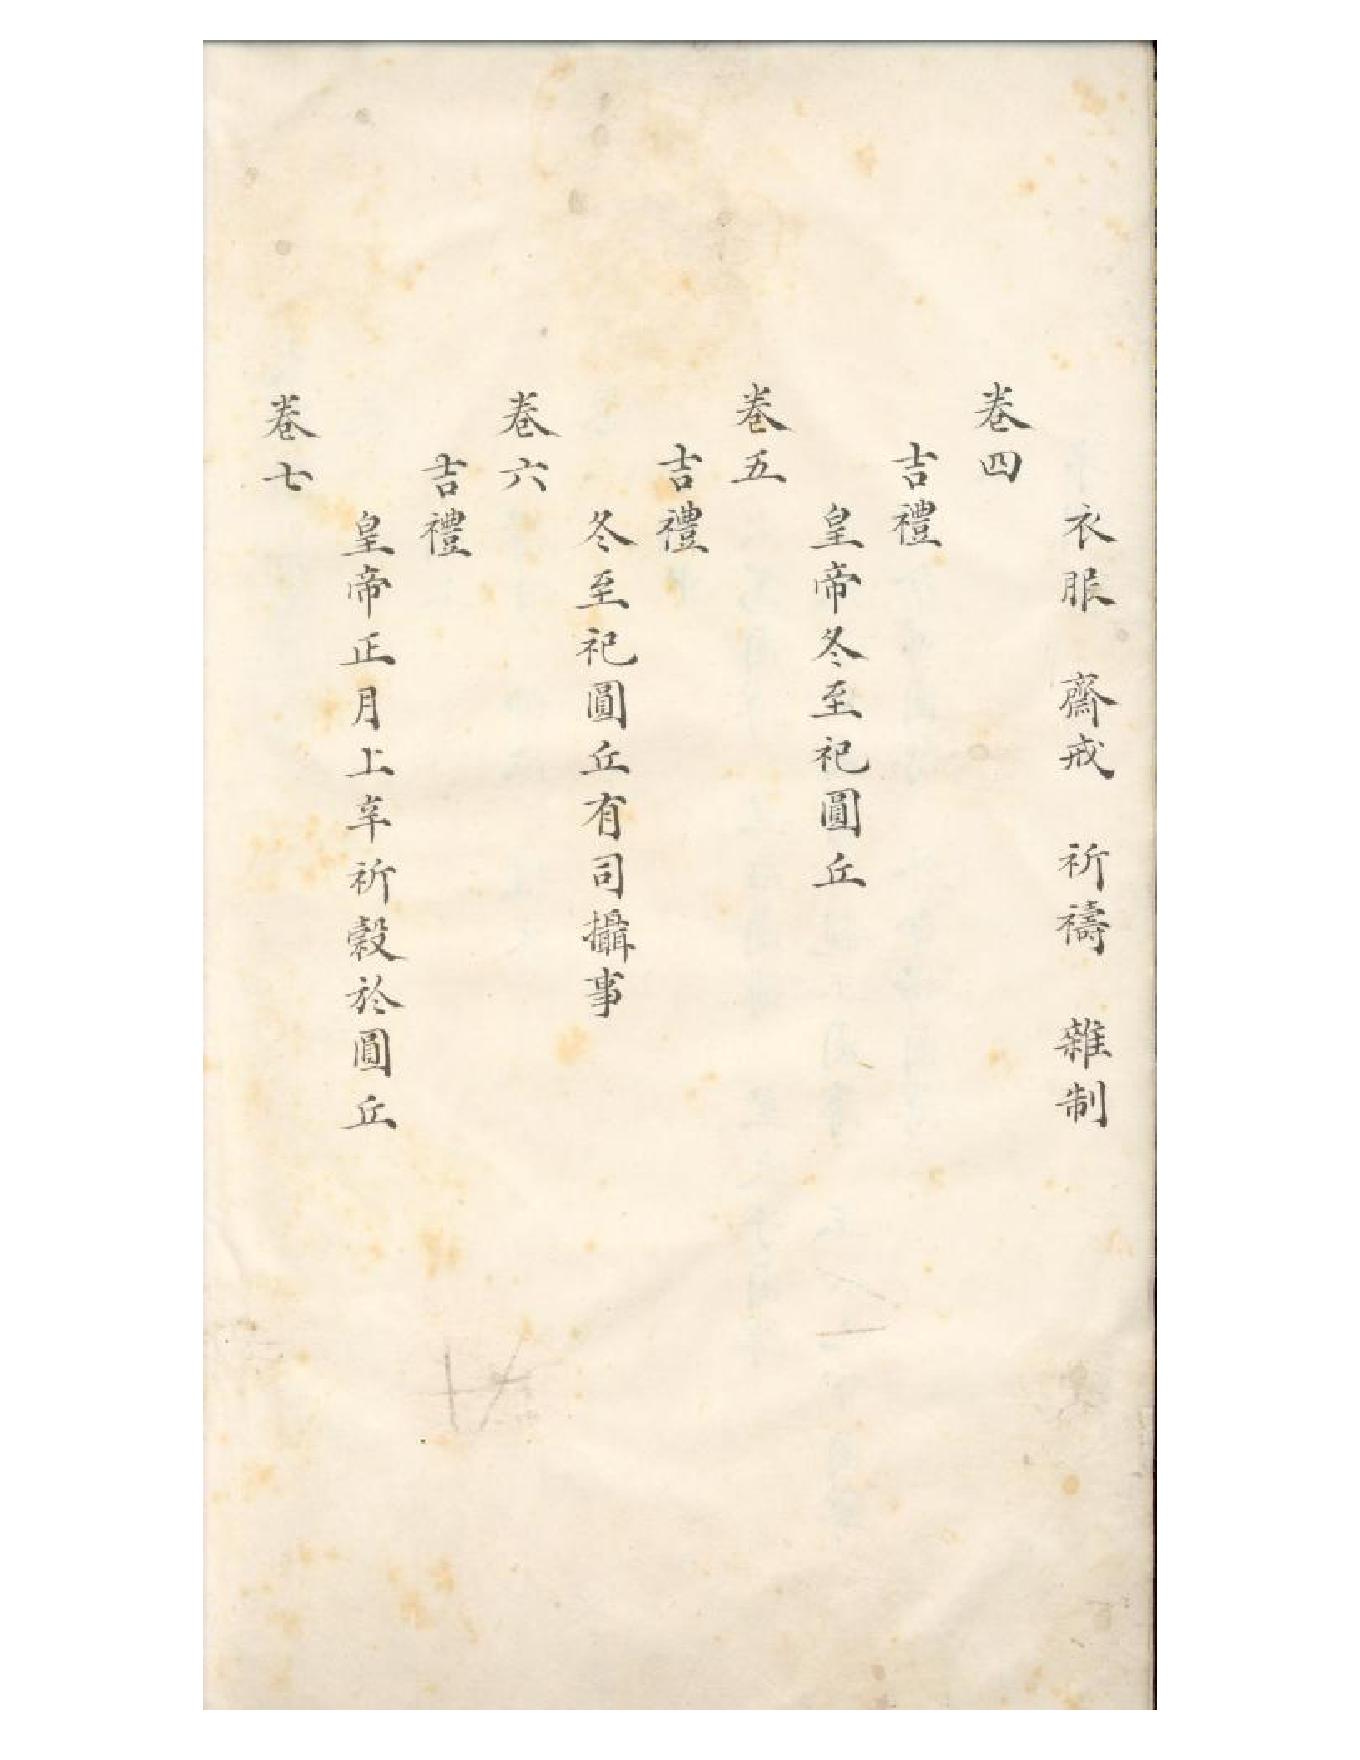 衣服　齋戒　祈禱　雜制
卷四
吉禮
皇帝冬至祀圓丘
卷五
吉禮
冬至祀圓丘有司攝事
卷六
吉禮
皇帝正月上辛祈穀於圓丘
卷七